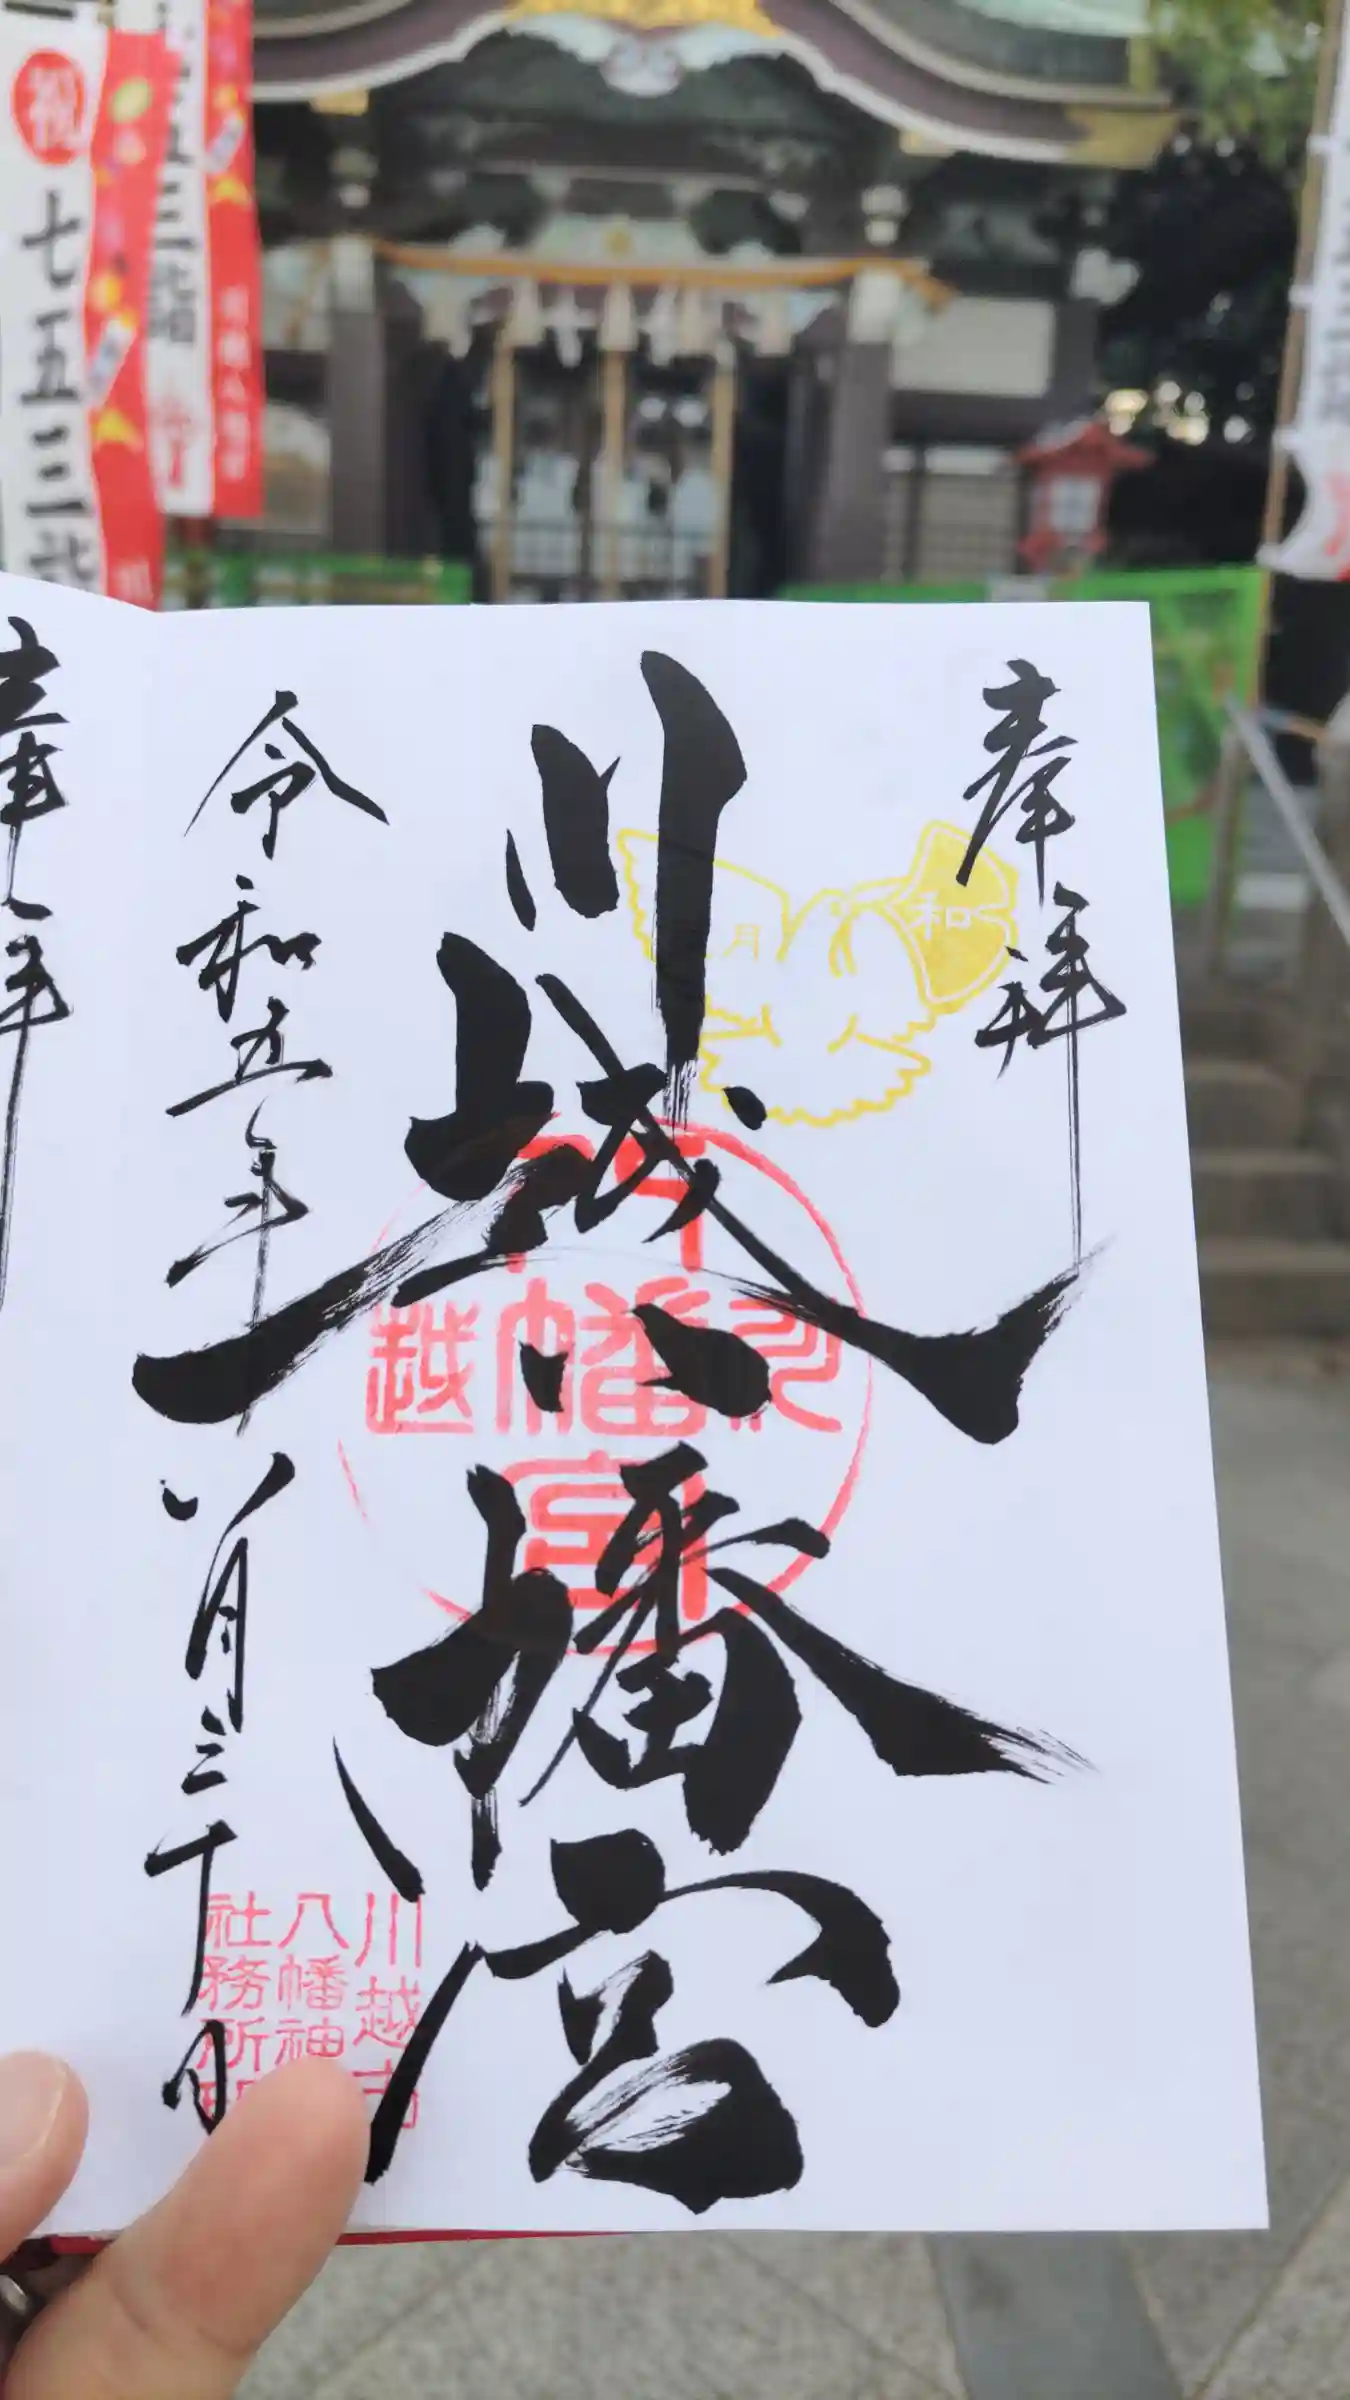 奉拝
川越八幡宮
令和五年八月三十日
月
和
八幡宮
越
川越市
八幡神
社務所
祝
七五三
五三詣
川越八幡宮
奉拝